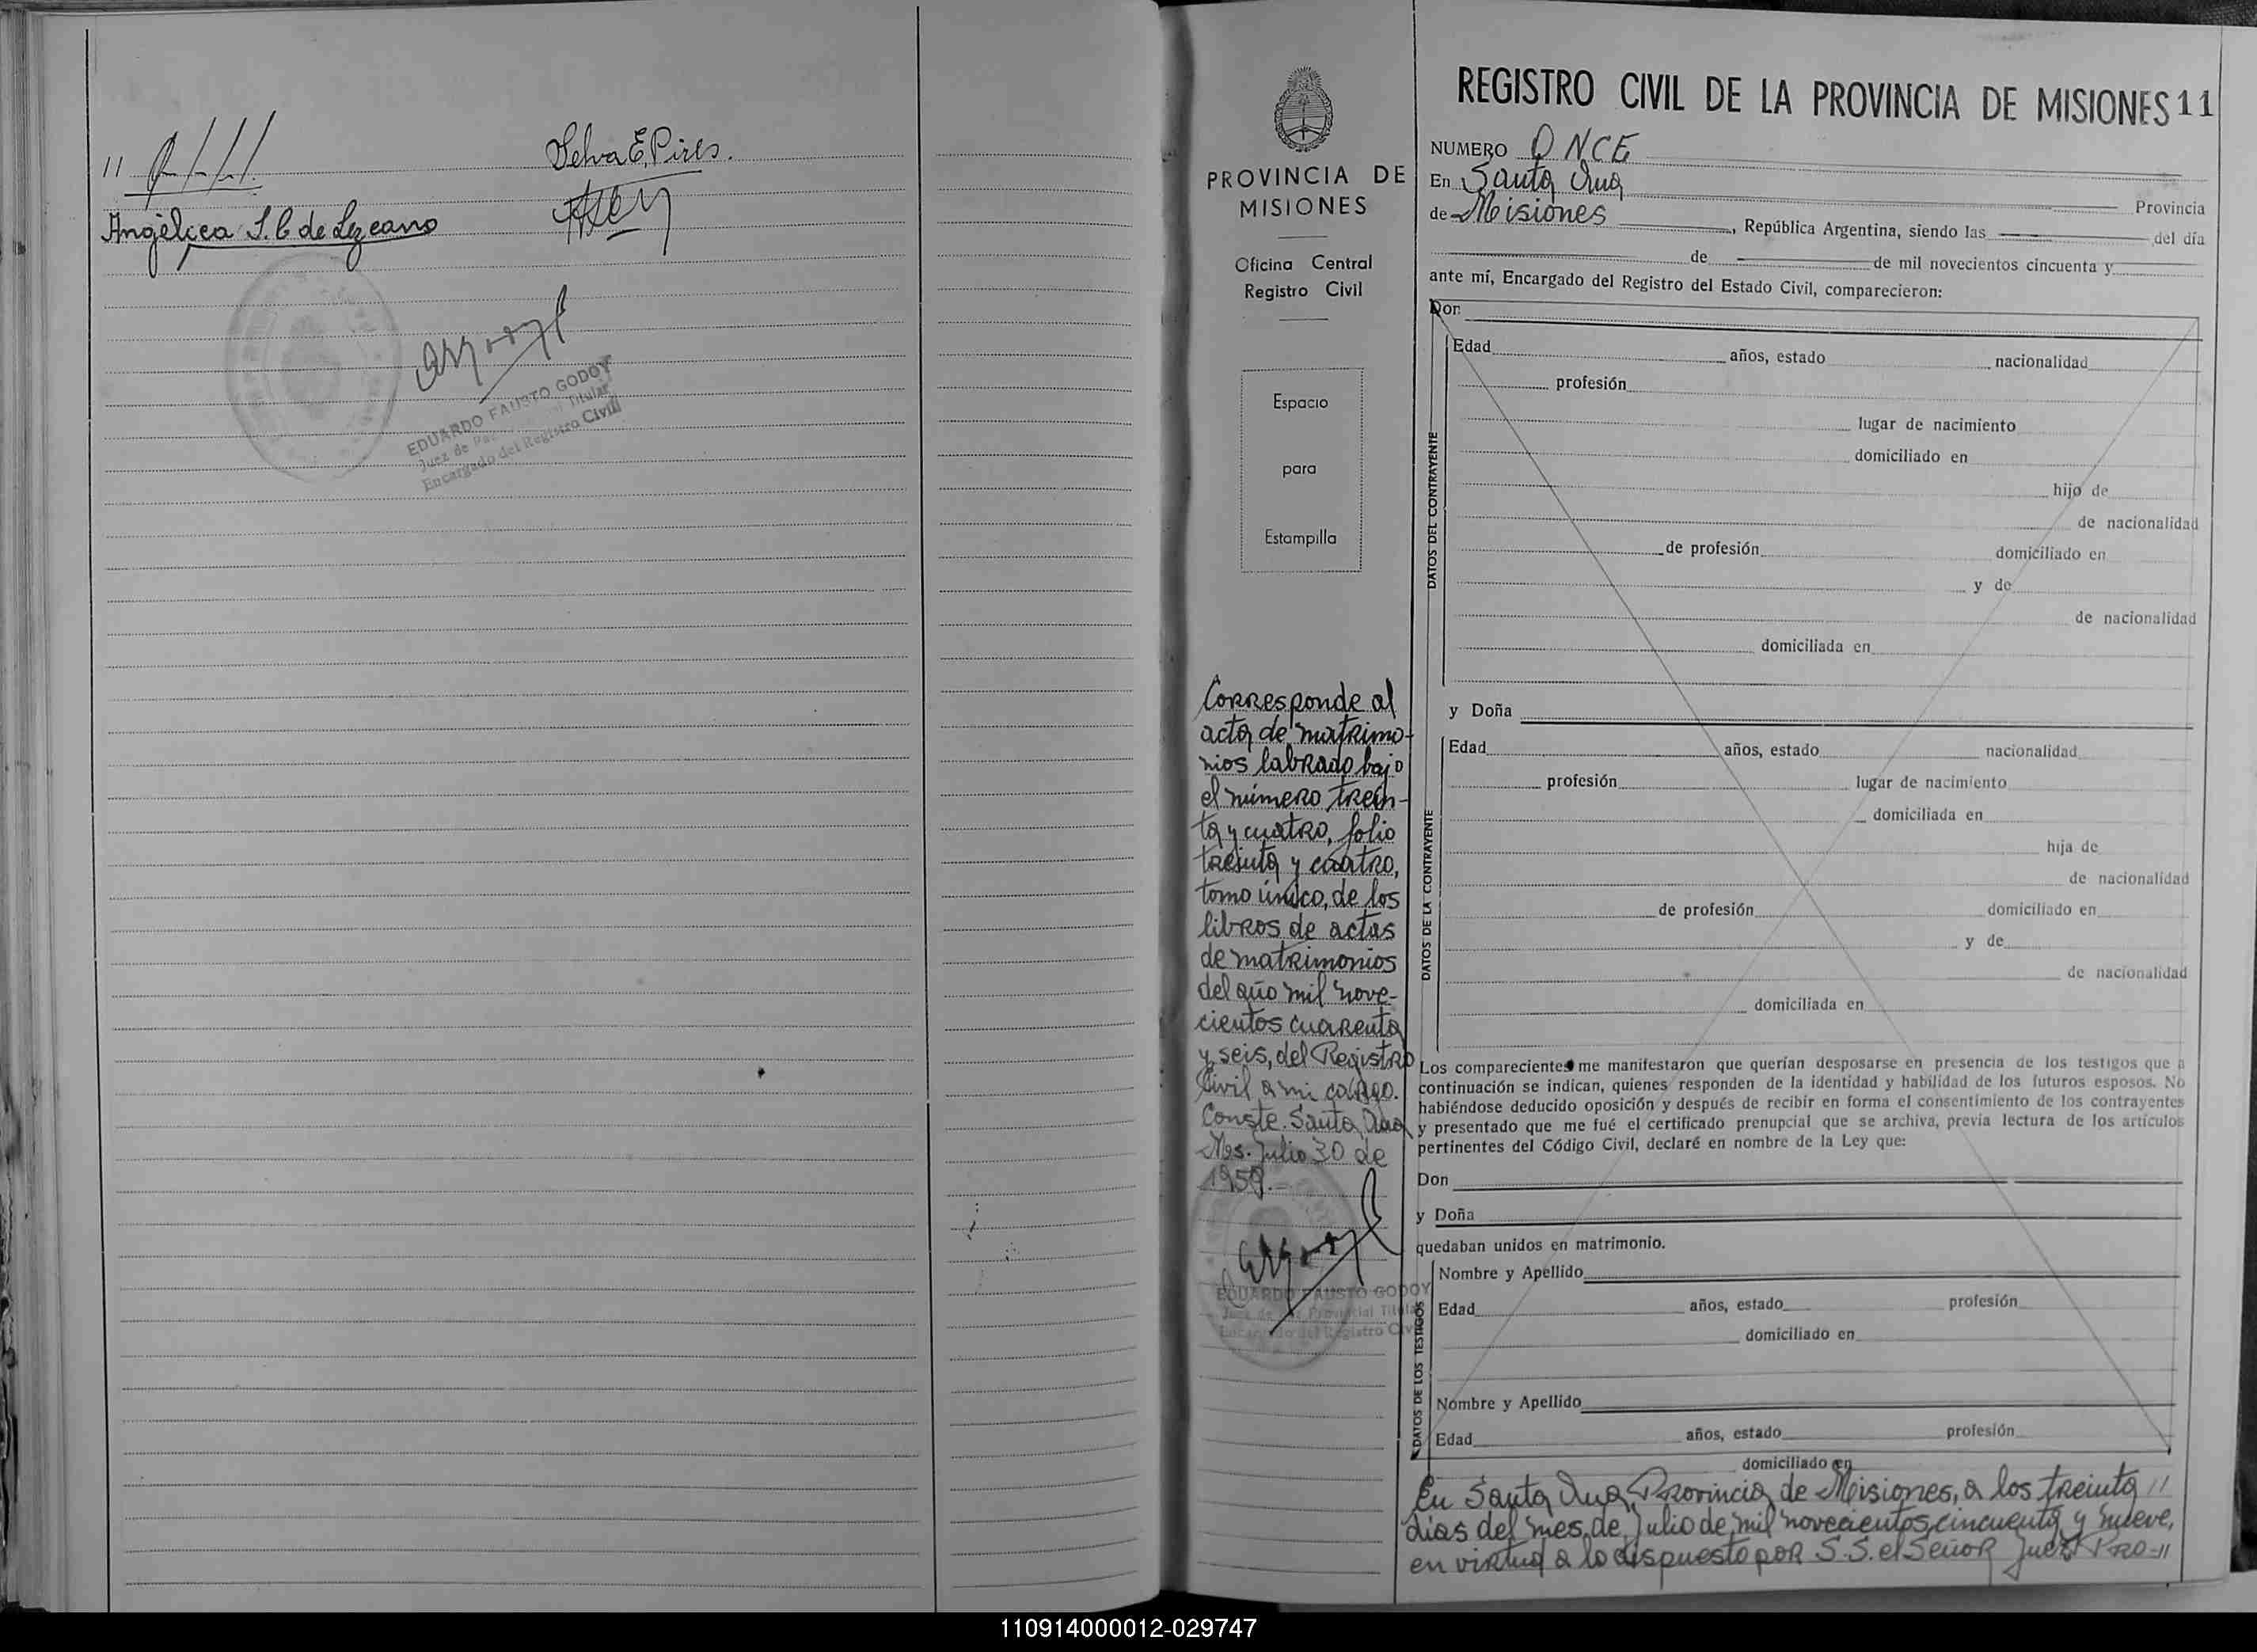 Selva E. Pires.
Angélica S. C. de Lezcano
EDUARDO FAUSTO GODOY
Juez de Paz Titular
Encargado del Registro Civil
PROVINCIA DE
MISIONES
Oficina Central
Registro Civil
Espacio
para
Estampilla
Corresponde al
acta de matrimo-
nios labrado bajo
el número trein-
ta y cuatro, folio
treinta y cuatro,
tomo único, de los
libros de actas
de matrimonios
del año mil nove-
cientos cuarenta
y seis, del Registro
Civil a mi cargo.
Conste. Santa Ana
Mes. Julio 30 de
1959.-
EDUARDO FAUSTO GODOY
Juez de Paz Provincial Titular
Encargado del Registro Civil
REGISTRO CIVIL DE LA PROVINCIA DE MISIONES 11
NUMERO ONCE
En Santa Ana Provincia
de Misiones, República Argentina, siendo las del día
de de mil novecientos cincuenta y
ante mí, Encargado del Registro del Estado Civil, comparecieron:
Don
DATOS DEL CONTRAYENTE
Edad años, estado nacionalidad
profesión
lugar de nacimiento
domiciliado en
hijo de
de nacionalidad
de profesión domiciliado en
y de
de nacionalidad
domiciliada en
y Doña
DATOS DE LA CONTRAYENTE
Edad años, estado nacionalidad
profesión lugar de nacimiento
domiciliada en
hija de
de nacionalidad
de profesión domiciliado en
y de
de nacionalidad
domiciliada en
Los comparecientes me manifestaron que querían desposarse en presencia de los testigos que a
continuación se indican, quienes responden de la identidad y habilidad de los futuros esposos. No
habiéndose deducido oposición y después de recibir en forma el consentimiento de los contrayentes
y presentado que me fué el certificado prenupcial que se archiva, previa lectura de los artículos
pertinentes del Código Civil, declaré en nombre de la Ley que:
Don
y Doña
quedaban unidos en matrimonio.
DATOS DE LOS TESTIGOS
Nombre y Apellido
Edad años, estado profesión
domiciliado en
Nombre y Apellido
Edad años, estado profesión
domiciliado en
En Santa Ana, Provincia de Misiones, a los treinta //
días del mes de Julio de mil novecientos cincuenta y nueve,
en virtud a lo dispuesto por S.S. el Señor Juez Pro-//
110914000012-029747